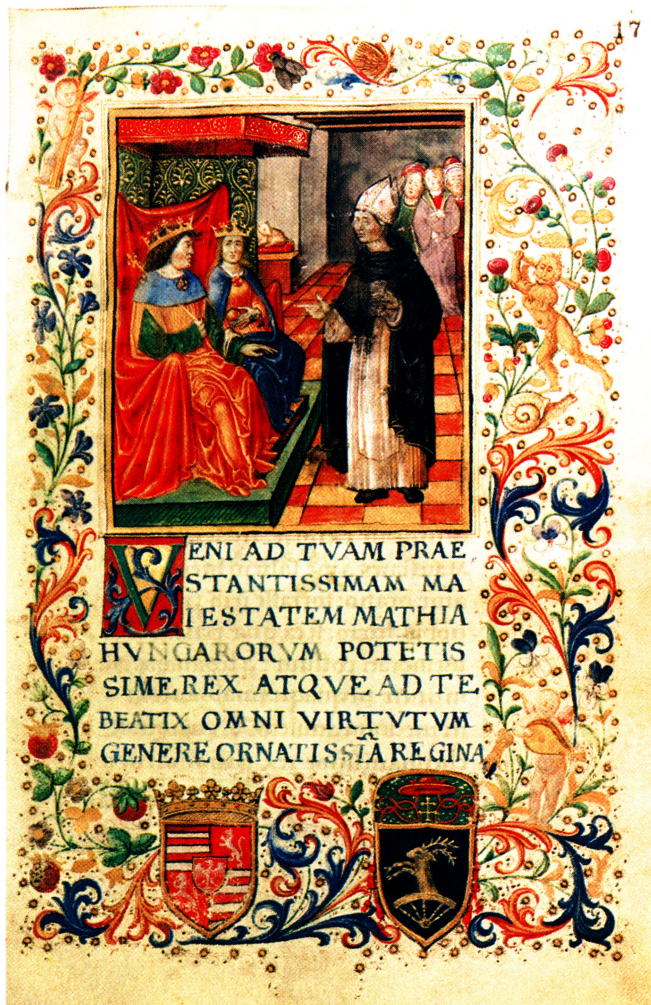 17
VENI AD TVAM PRAE
STANTISSIMAM MA
IESTATEM MATHIA
HVNGARORVM POTETIS
SIME REX ATQVE AD TE
BEATIX OMNI VIRTVTVM
GENERE ORNATISSIM̃A REGINA